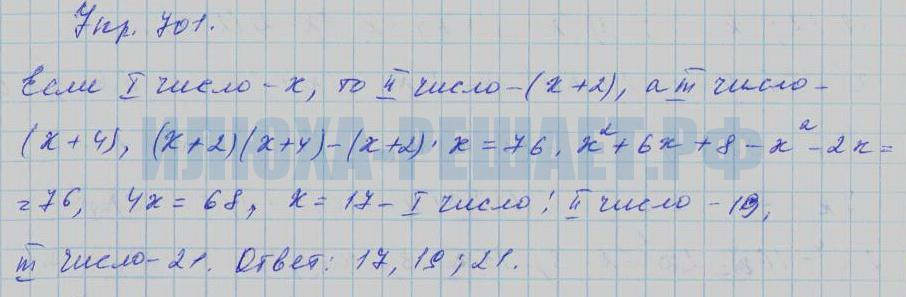 Упр. 701.
Если I число - x, то II число - (x+2), а III число -
(x+4), (x+2)(x+4)-(x+2)·x=76. x²+6x+8-x²-2x=
ИЛЮХА-РЕШАЕТ.РФ
=76, 4x=68, x=17- I число; II число -19,
III число-21. Ответ: 17, 19; 21.